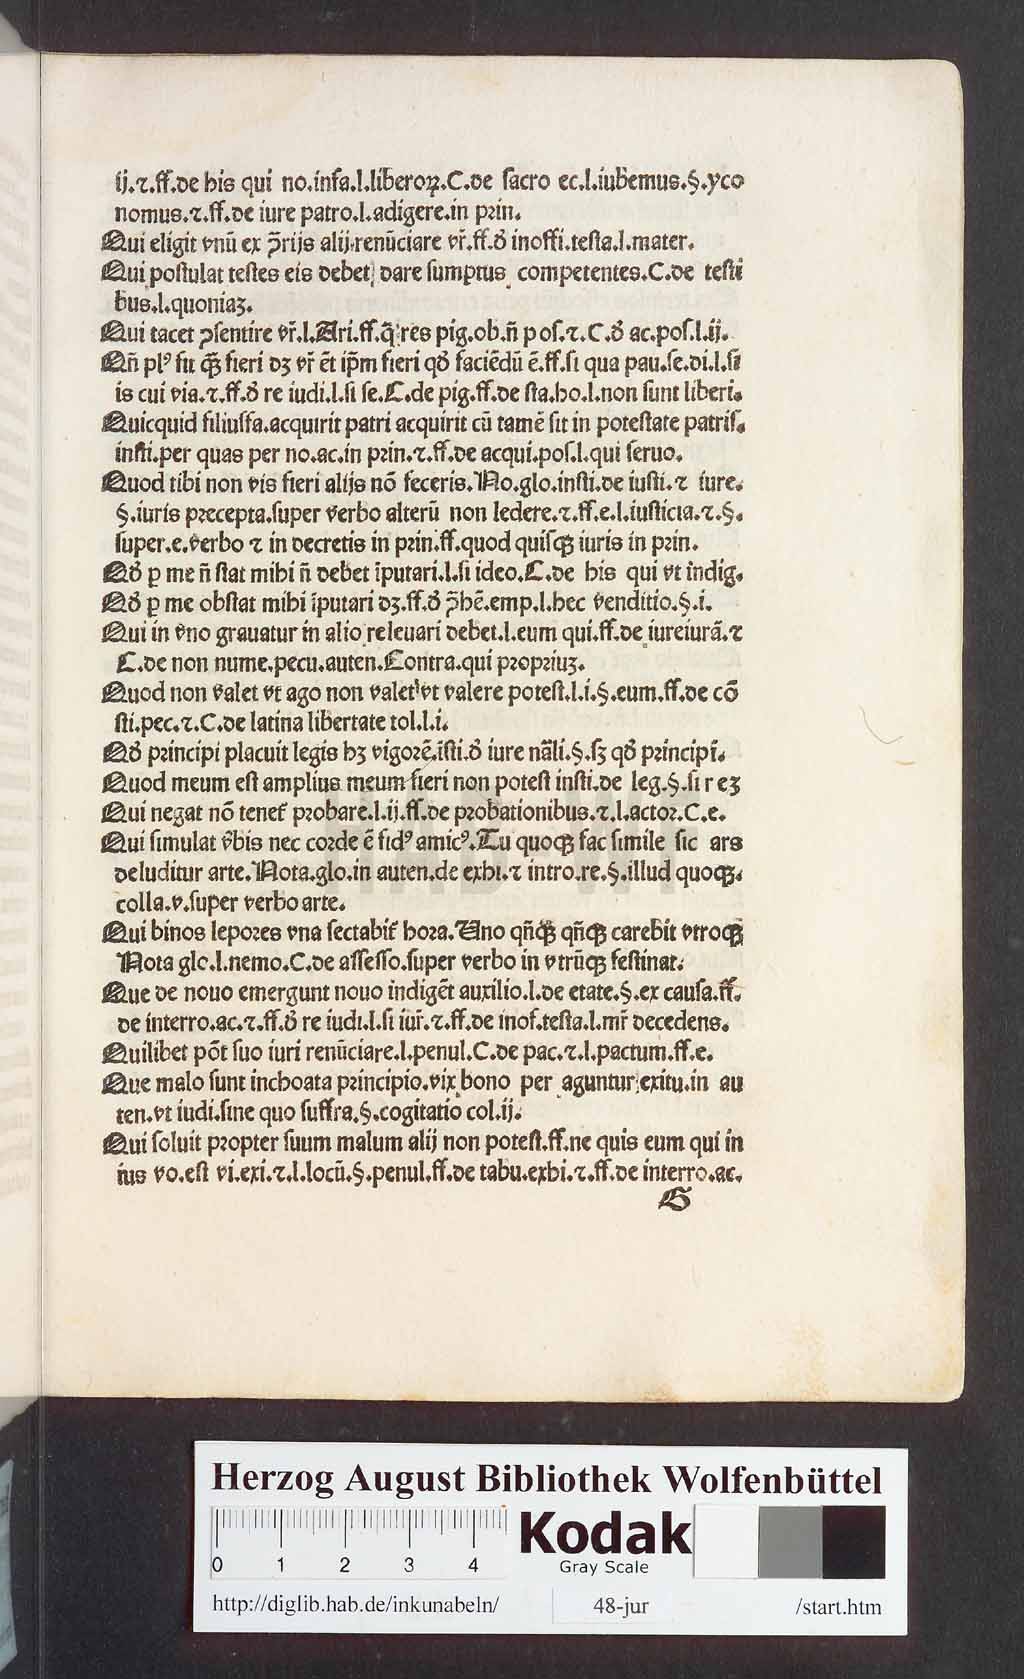 ij.⁊.ff.de his qui no.infa.l.liberoꝝ.C.de sacro ec.l.iubemus.§.yco
nomus.⁊.ff.de iure patro.l.adigere.in prin.
Qui eligit vnū ex ꝯ̄rijs alij renūciare vr̄.ff.ð inoffi.testa.l.mater.
Qui postulat testes eis debet dare sumptus competentes.C.de testi
bus.l.quoniaꝫ.
Qui tacet ꝯsentire vr̄.l.Ari.ff.q̄ res pig.ob.n̄ pos.⁊.C.ð ac.pos.l.ij.
Qn̄ plꝰ fit ꝙ̄ fieri dꝫ vr̄ ēt ip̄m fieri qð faciēdū ē.ff.si qua pau.fe.di.l.si
is cui via.⁊.ff.ð re iudi.l.si se.C.de pig.ff.de sta.ho.l.non sunt liberi.
Quicquid filiusfa.acquirit patri acquirit cū tamē sit in potestate patris.
insti.per quas per no.ac.in prin.⁊.ff.de acqui.pos.l.qui seruo.
Quod tibi non vis fieri alijs nō feceris.No.glo.insti.de iusti.⁊ iure.
§.iuris precepta.super verbo alterū non ledere.⁊.ff.e.l.iusticia.⁊.§.
super.e.verbo ⁊ in decretis in prin.ff.quod quisqꝫ iuris in prin.
Qð ꝑ me n̄ stat mihi n̄ debet īputari.l.si ideo.C.de his qui vt indig.
Qð ꝑ me obstat mihi īputari dꝫ.ff.ð ꝓhē.emp.l.hec venditio.§.i.
Qui in vno grauatur in alio releuari debet.l.eum qui.ff.de iureiurā.⁊
C.de non nume.pecu.auten.Contra.qui propriuꝫ.
Quod non valet vt ago non valet vt valere potest.l.i.§.eum.ff.de cō
sti.pec.⁊.C.de latina libertate tol.l.i.
Qð principi placuit legis hꝫ vigorē.isti.ð iure nāli.§.sꝫ qð principi.
Quod meum est amplius meum fieri non potest insti.de leg.§.si reꝫ
Qui negat nō tenet᷑ probare.l.ij.ff.de probationibus.⁊.l.actor.C.e.
Qui simulat v̄bis nec corde ē fidꝰ amicꝰ.Tu quoqꝫ fac simile sic ars
deluditur arte.Nota.glo.in auten.de exhi.⁊ intro.re.§.illud quoqꝫ.
colla.v.super verbo arte.
Qui binos lepores vna sectabit᷑ hora.Uno qn̄qꝫ qn̄qꝫ carebit vtroqꝫ
Nota glo.l.nemo.C.de assesso.super verbo in vtrūqꝫ festinat.
Que de nouo emergunt nouo indigēt auxilio.l.de etate.§.ex causa.ff.
de interro.ac.⁊.ff.ð re iudi.l.si iur̄.⁊.ff.de inof.testa.l.mr̄ decedens.
Quilibet pōt suo iuri renūciare.l.penul.C.de pac.⁊.l.pactum.ff.e.
Que malo sunt inchoata principio.vix bono per aguntur exitu.in au
ten.vt iudi.sine quo suffra.§.cogitatio col.ij.
Qui soluit propter suum malum alij non potest.ff.ne quis eum qui in
ius vo.est vi.exi.⁊.l.locū.§.penul.ff.de tabu.exhi.⁊.ff.de interro.ac.
G
HAB WF
Herzog August Bibliothek Wolfenbüttel
0 1 2 3 4
Kodak
Gray Scale
http://diglib.hab.de/inkunabeln/ 48-jur /start.htm